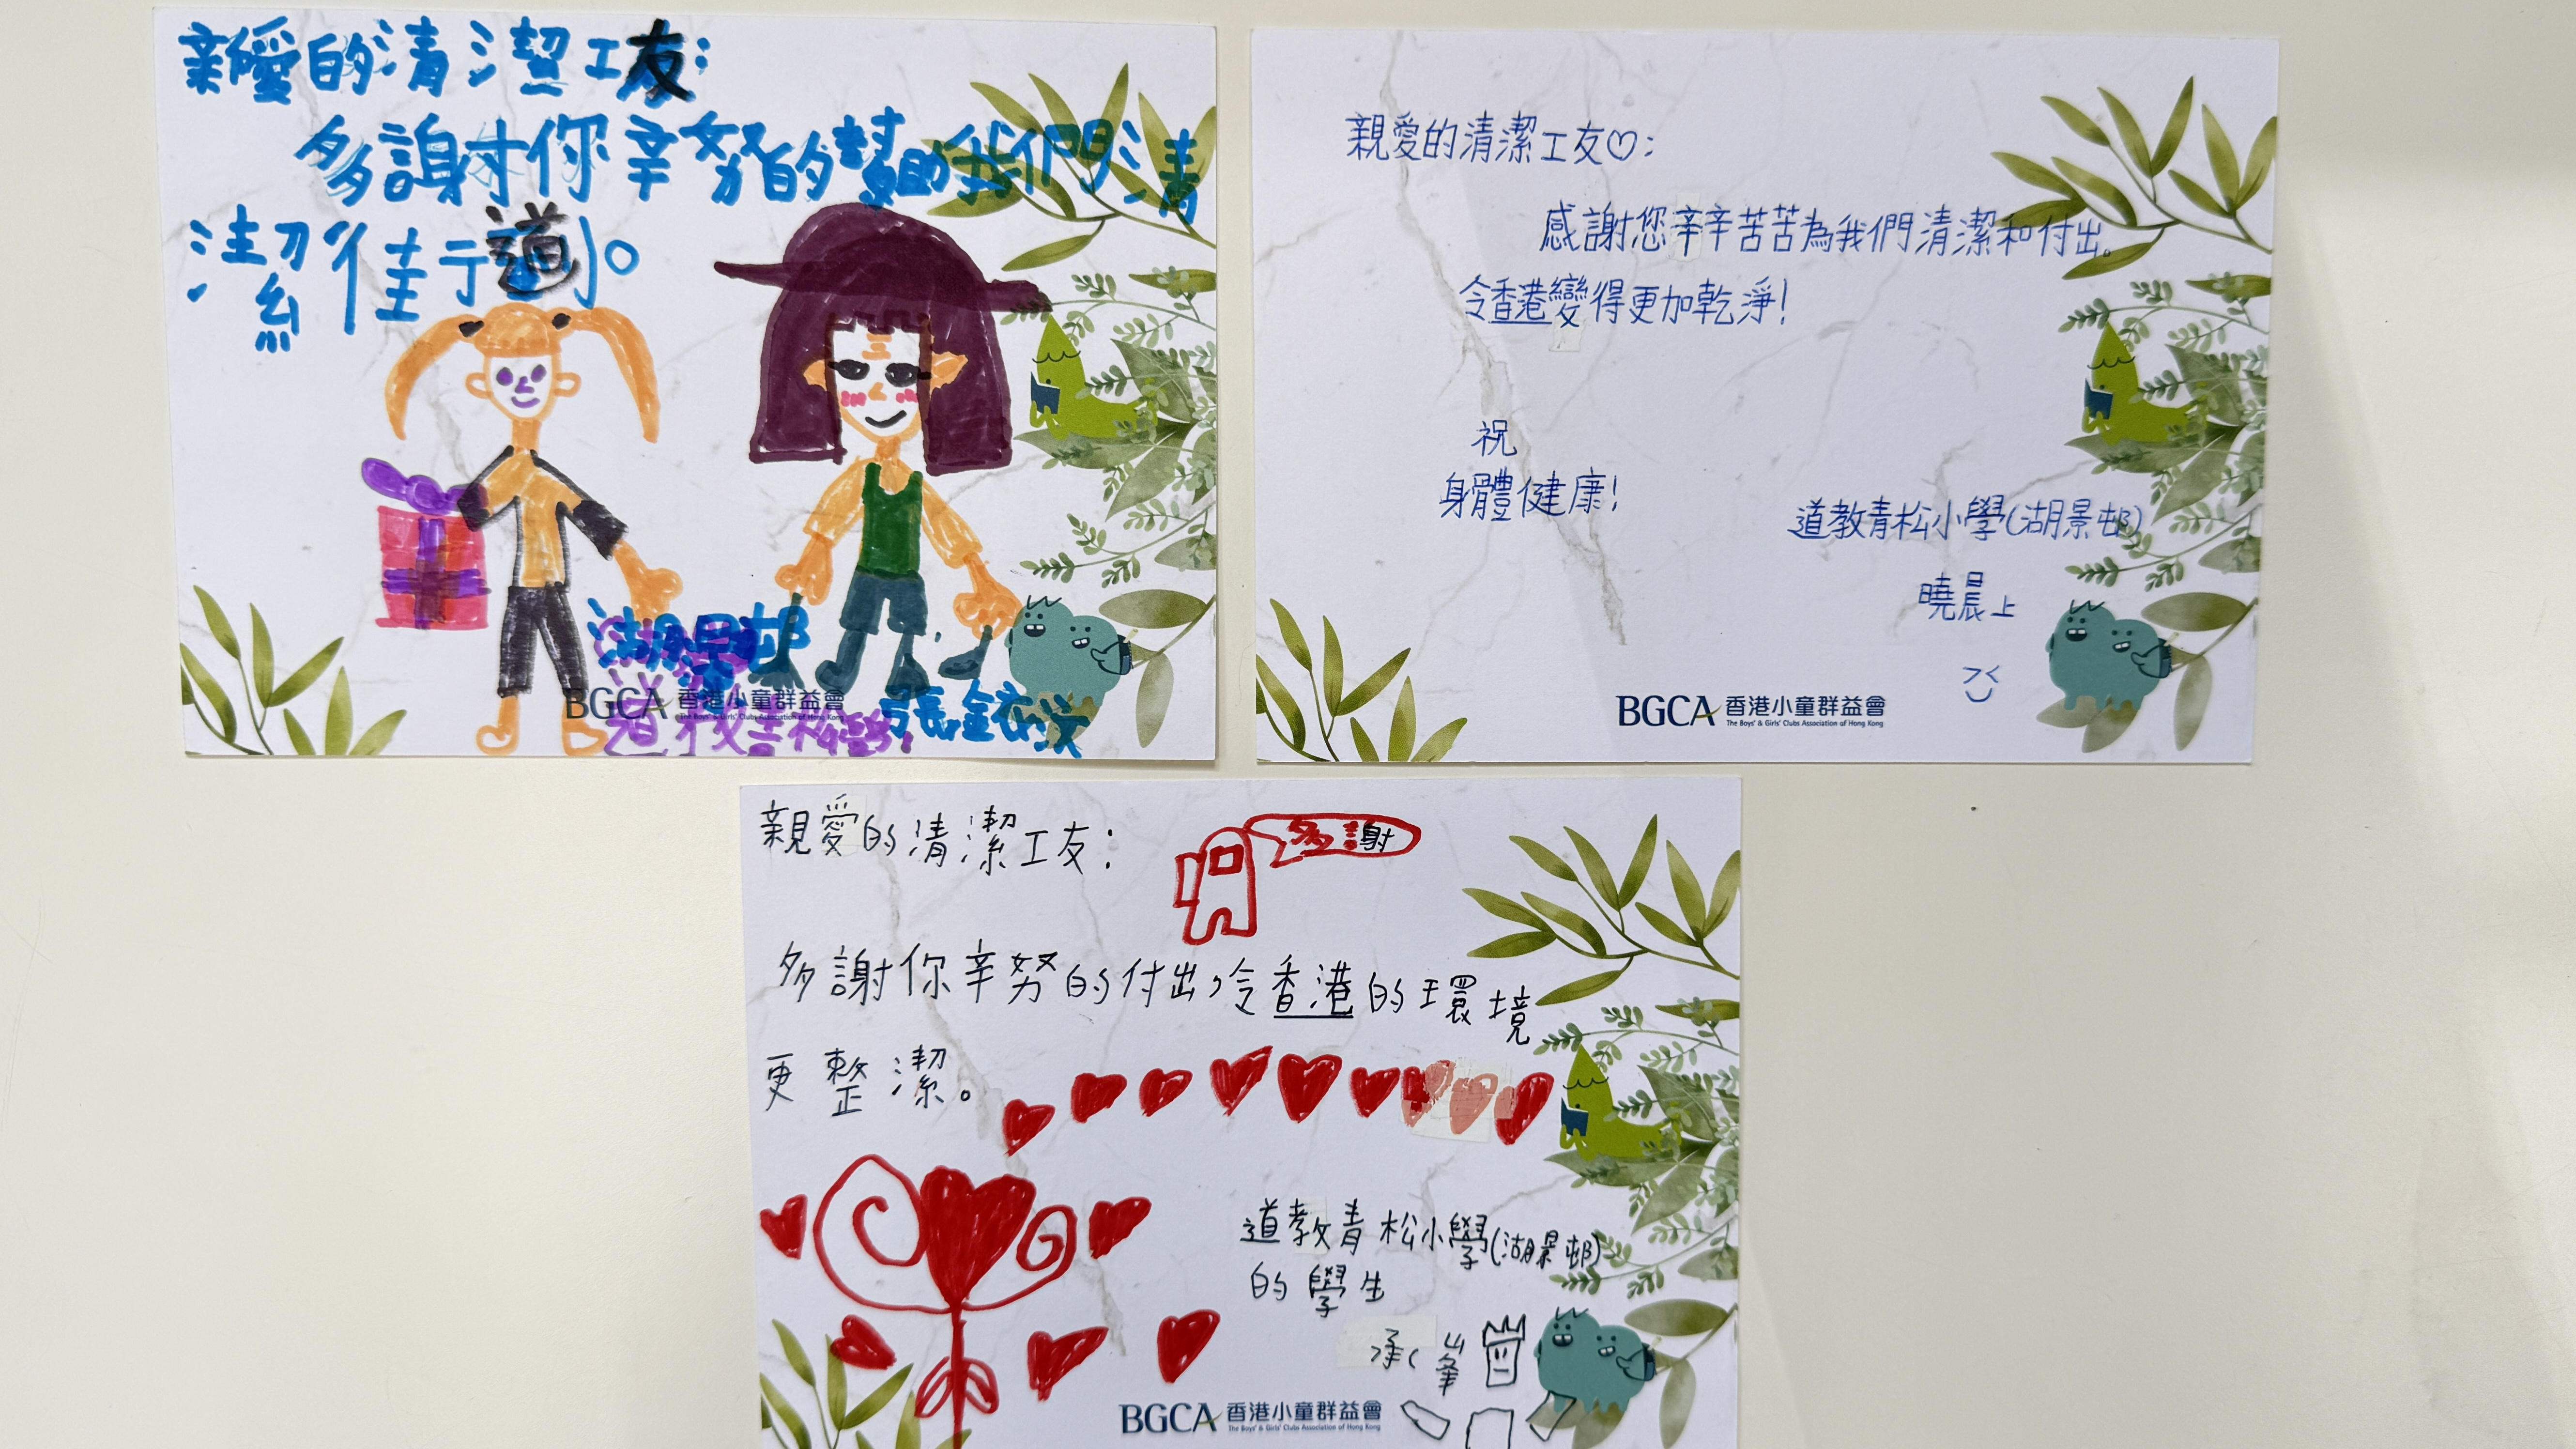 親愛的清潔工友:
多謝你辛努的幫助我們清
潔街道。
湖景邨
道教青松小學
BGCA 香港小童群益會
The Boys' & Girls' Clubs Association of Hong Kong
親愛的清潔工友♡:
感謝您辛辛苦苦為我們清潔和付出。
令香港變得更加乾淨!
祝
身體健康!
道教青松小學(湖景邨)
曉晨上
BGCA 香港小童群益會
The Boys' & Girls' Clubs Association of Hong Kong
親愛的清潔工友:
多謝
多謝你辛努的付出,令香港的環境
更整潔。
道教青松小學(湖景邨)
的學生
承峯
BGCA 香港小童群益會
The Boys' & Girls' Clubs Association of Hong Kong